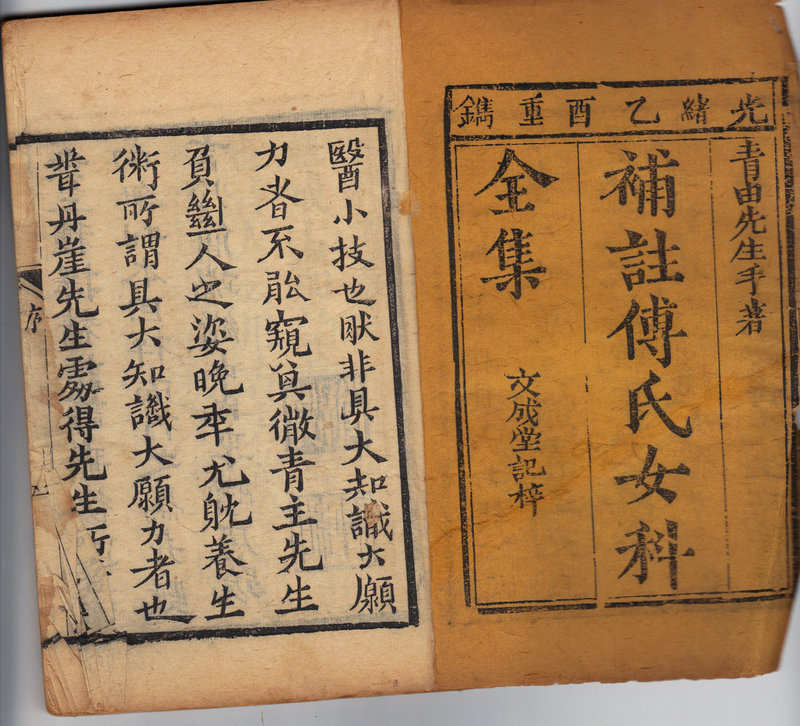 光緒乙酉重鐫
青由先生手著
補註傅氏女科
全集
文成堂記梓
醫小技也肰非具大知識大願
力者不能窺其微青主先生
負幽人之姿晚年尤躭養生
術所謂具大知識大願力者也
丹崖先生得先生所
序